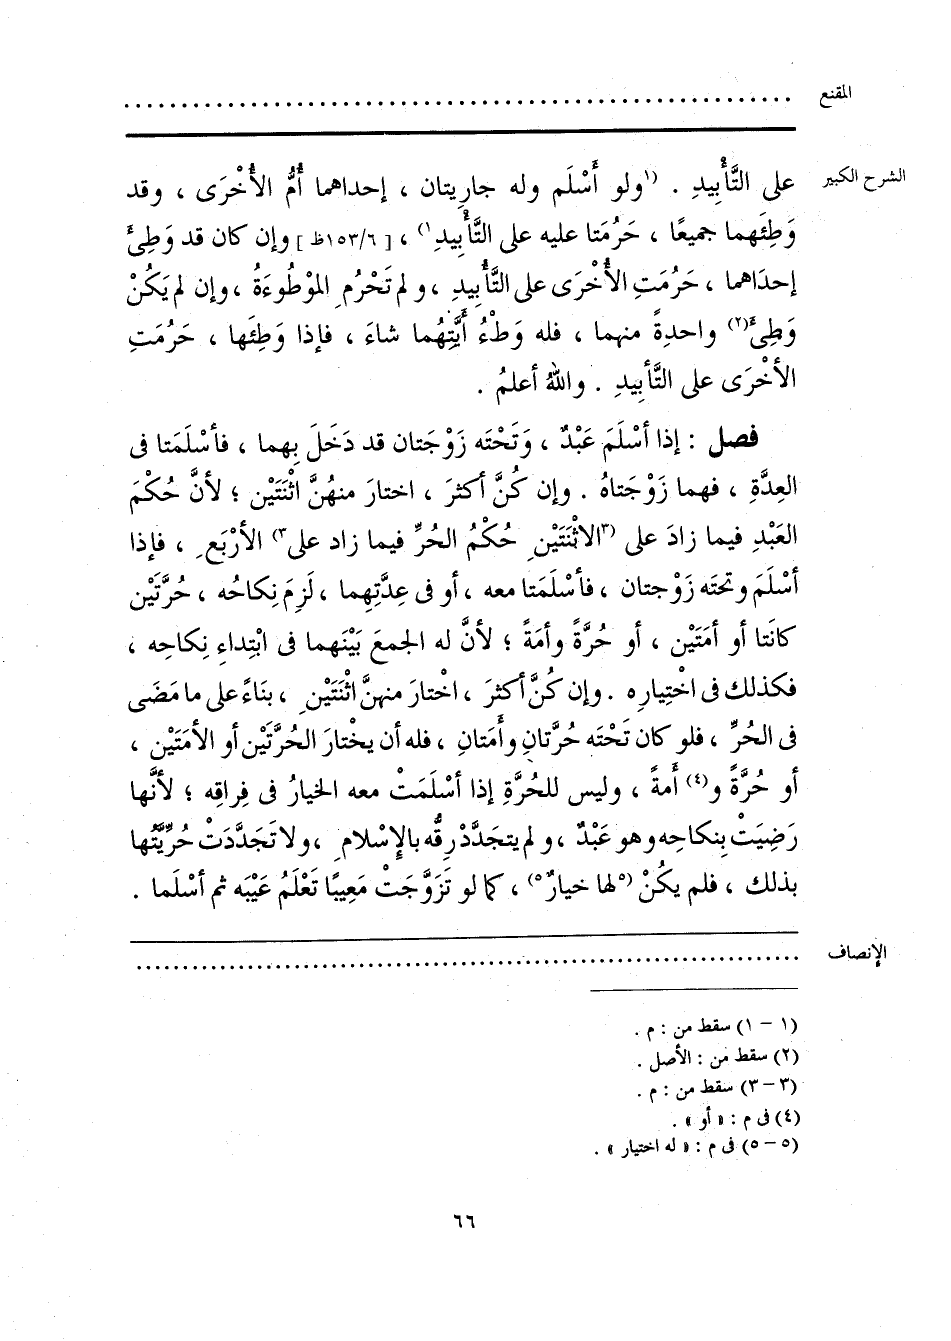 المقنع ........................................................
الشرح الكبير على التَّأْبِيدِ . (١ولو أَسْلَم وله جارِيتان ، إحداهما أُمُّ الأُخْرَى ، وقد
وَطِئَهما جميعًا ، حَرُمَتا عليه على التَّأْبِيدِ١) ، [ ١٥٣/٦ظ ] وإن كان قد وَطِئَ
إحدَاهما ، حَرُمَتِ الأُخْرَى على التَّأْبِيدِ ، ولم تَحْرُمِ المَوْطُوءَةُ ، وإن لم يَكُنْ
وَطِئَ(٢) واحدةً منهما ، فله وَطْءُ أَيَّتِهُما شاءَ ، فإذا وَطِئَها ، حَرُمَتِ
الأُخْرَى على التَّأبِيدِ . واللهُ أعلمُ .
فصل : إذا أسْلَمَ عَبْدٌ ، وَتَحْتَه زَوْجَتان قد دَخَلَ بِهما ، فأسْلَمَتا فى
العِدَّةِ ، فهما زَوْجَتاهُ . وإن كُنَّ أكثرَ ، اختارَ منهُنَّ اثْنَتَيْن ؛ لأنَّ حُكْمَ
العَبْدِ فيما زادَ على (٣الاثْنَتَيْنِ حُكْمُ الحُرِّ فيما زاد على٣) الأرْبَعِ ، فإذا
أسْلَمَ وتحتَه زَوْجتان ، فأسْلَمَتا معه ، أو فى عِدَّتِهِما ، لَزِمَ نِكاحُه ، حُرَّتَيْن
كانَتا أو أمَتَيْن ، أو حُرَّةً وأمَةً ؛ لأنَّ له الجمعَ بَيْنَهما فى ابْتِداءِ نِكاحِه ،
فكذلك فى اخْتِيارِه . وإن كُنَّ أكثرَ ، اخْتارَ منهنَّ اثْنَتَيْنِ ، بناءً على ما مَضَى
فى الحُرِّ ، فلو كان تَحْتَه حُرَّتانِ وأَمَتانِ ، فله أن يخْتارَ الحُرَّتَيْن أو الأمَتَيْن ،
أو حُرَّةً و(٤) أَمةً ، وليس للحُرَّةِ إذا أسْلَمَتْ معه الخيارُ فى فِراقِه ؛ لأنَّها
رَضِيَتْ بنكاحِه وهو عَبْدٌ ، ولم يتجَدَّدْ رِقُّه بالإِسْلامِ ، ولا تَجَدَّدَتْ حُرِّيَّتُها
بذلك ، فلم يكُنْ (٥لها خيارٌ٥) ، كما لو تَزَوَّجَتْ مَعِيبًا تَعْلَمُ عَيْبَه ثم أسْلَما .
الإنصاف ........................................................
(١ – ١) سقط من : م .
(٢) سقط من : الأصل .
(٣ – ٣) سقط من : م .
(٤) فى م : « أو » .
(٥ – ٥) فى م : « له اختيار » .
٦٦